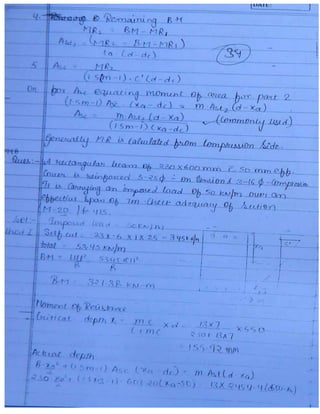 DATE:
4. Remaining B.M
MR2 = BM - MR1
Ast2 = (MR2 = BM - MR1)
(d - dc)
34
5 Asc = MR2
(1.5m-1).c'(d-dc)
Or for Asc equating moment of area for part 2
(1.5m-1) Asc (xa-dc) = m.Ast2 (d-xa)
Asc = m.Ast2 (d-xa) (Commonly used)
(1.5m-1)(xa-dc)
Generally MR is calculated from Compression Side.
Ques:- A rectangular beam of 230x600mm & 50 mm eff.
Cover is reinforced 5-25φ in tension & 3-16 φ Compression
It is Carrying an imposed load of 50 kN/m over an
effective span of 7m. Check adequacy of Section
M-20, Fe 415.
Sol:- Imposed load = 50 kN/m
Self wt. = .23x.6x1x25 = 3.45 kN/m
total = 53.45 kN/m
BM = wl²
8
BM = 321.38 kN-m
Moment of Resistance
Critical depth x = mc x d = 13x7 x550
t+mc 230+13x7
= 155.92 mm
Actual depth
B.xa² + (1.5m-1) Asc (xa-dc) = m Ast (d-xa)